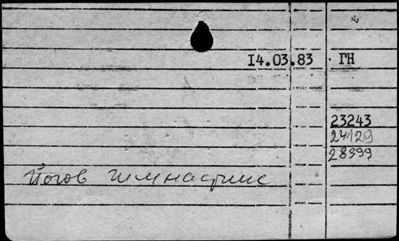 14.03.83 ГН
23243
24129
28399
Йогов гимнастик